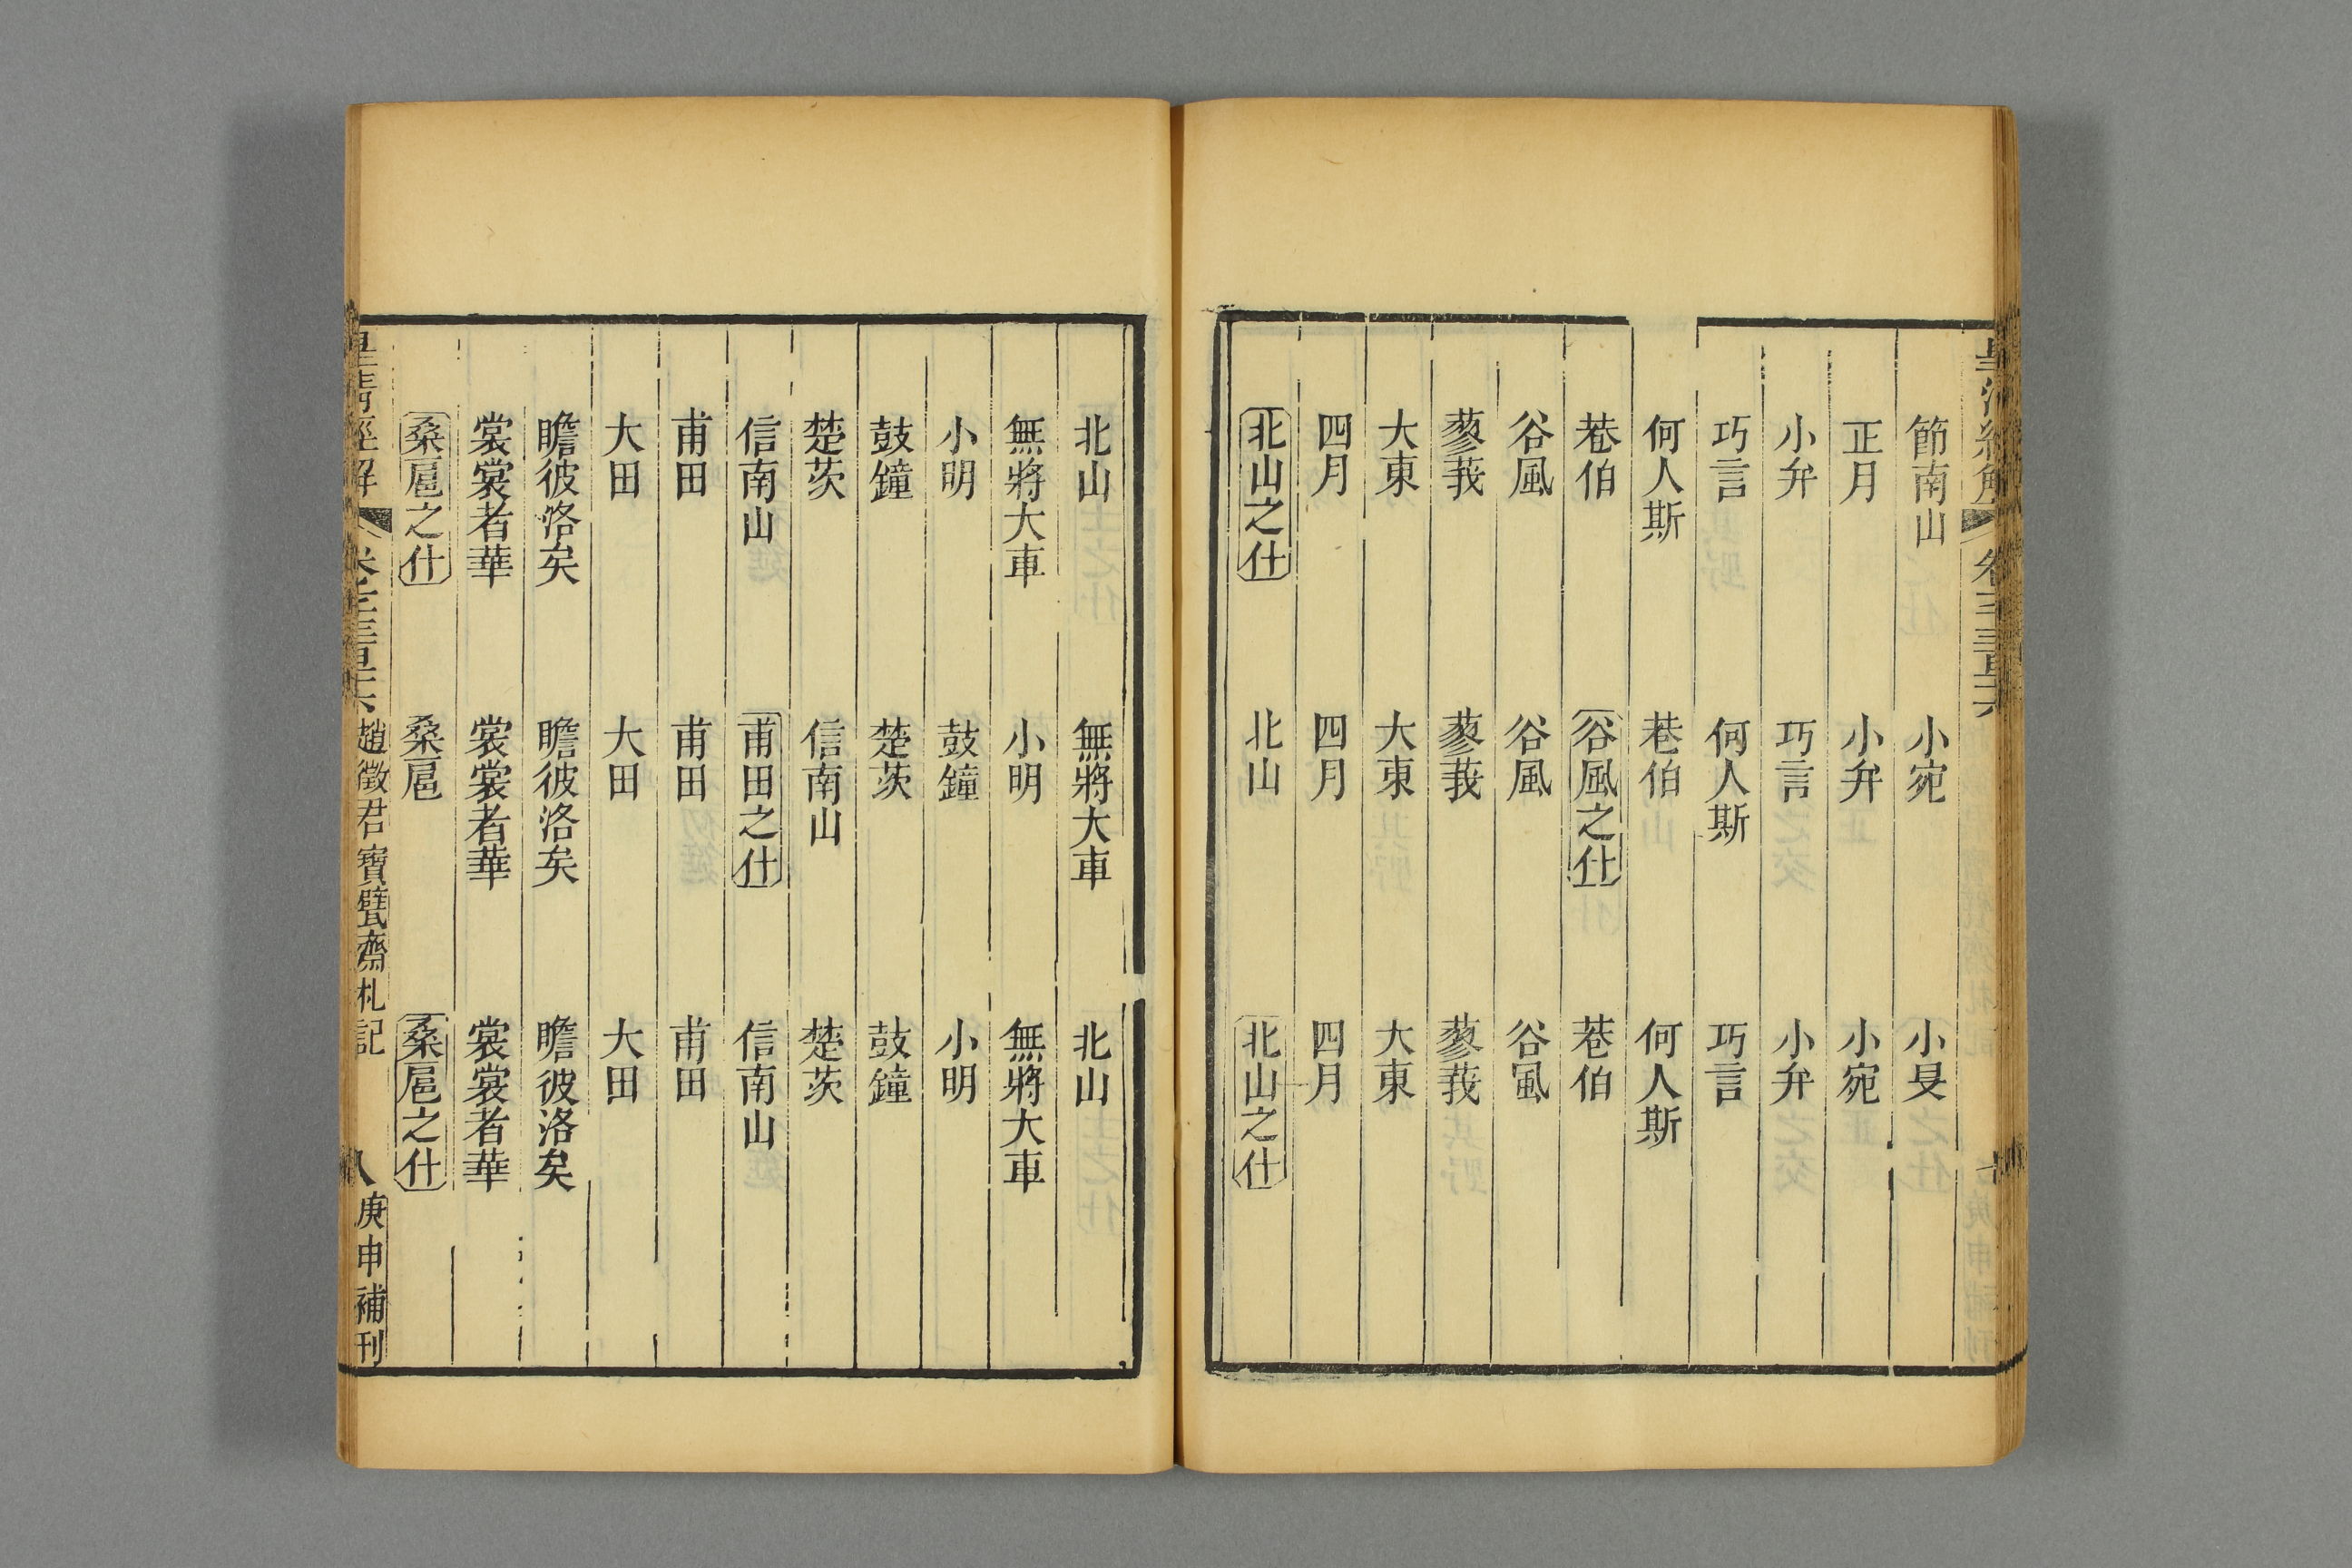 節南山 小宛 小旻
正月 小弁 小宛
小弁 巧言 小弁
巧言 何人斯 巧言
何人斯 巷伯 何人斯
巷伯 谷風之什 巷伯
谷風 谷風 谷風
蓼莪 蓼莪 蓼莪
大東 大東 大東
四月 四月 四月
北山之什 北山 北山之什
北山 無將大車 北山
無將大車 小明 無將大車
小明 鼓鐘 小明
鼓鐘 楚茨 鼓鐘
楚茨 信南山 楚茨
信南山 甫田之什 信南山
甫田 甫田 甫田
大田 大田 大田
瞻彼洛矣 瞻彼洛矣 瞻彼洛矣
裳裳者華 裳裳者華 裳裳者華
桑扈之什 桑扈 桑扈之什
皇清經解 卷千三百十六 趙徵君寶甓齋札記 八 庚申補刊